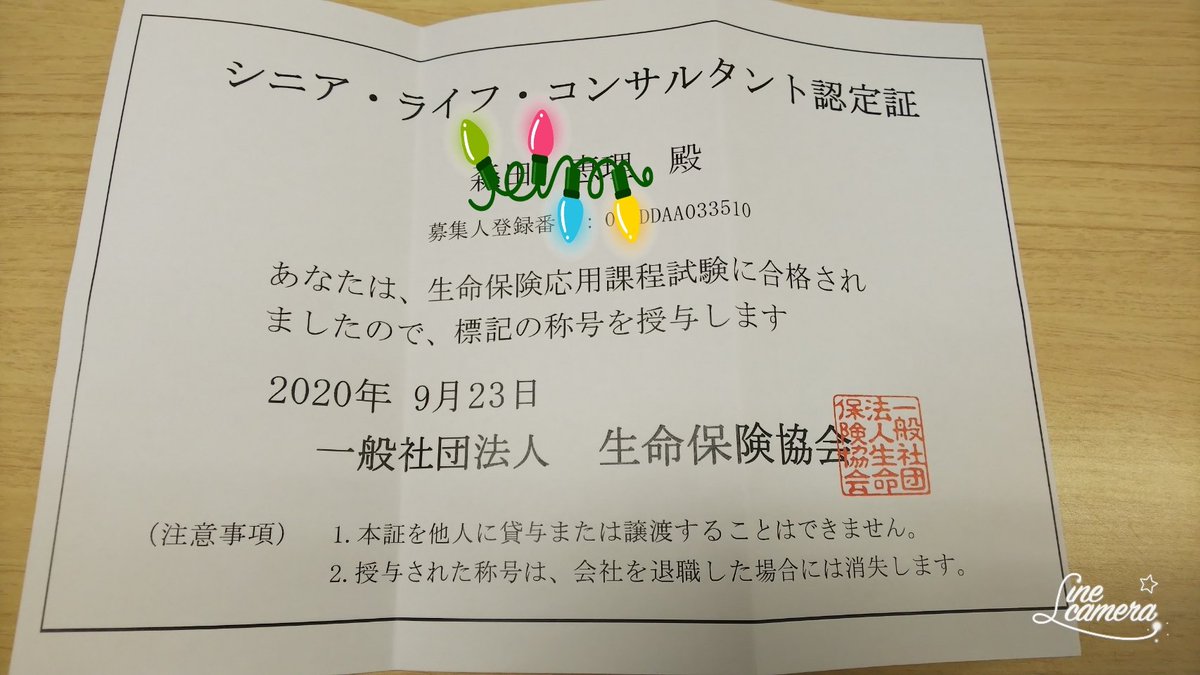 シニア・ライフ・コンサルタント認定証
殿
募集人登録番 : 0 DDAA033510
あなたは、生命保険応用課程試験に合格され
ましたので、標記の称号を授与します
2020年 9月23日
一般社団法人 生命保険協会
一般社団
法人生命
保険協会
(注意事項) 1. 本証を他人に貸与または譲渡することはできません。
2. 授与された称号は、会社を退職した場合には消失します。
Line
camera